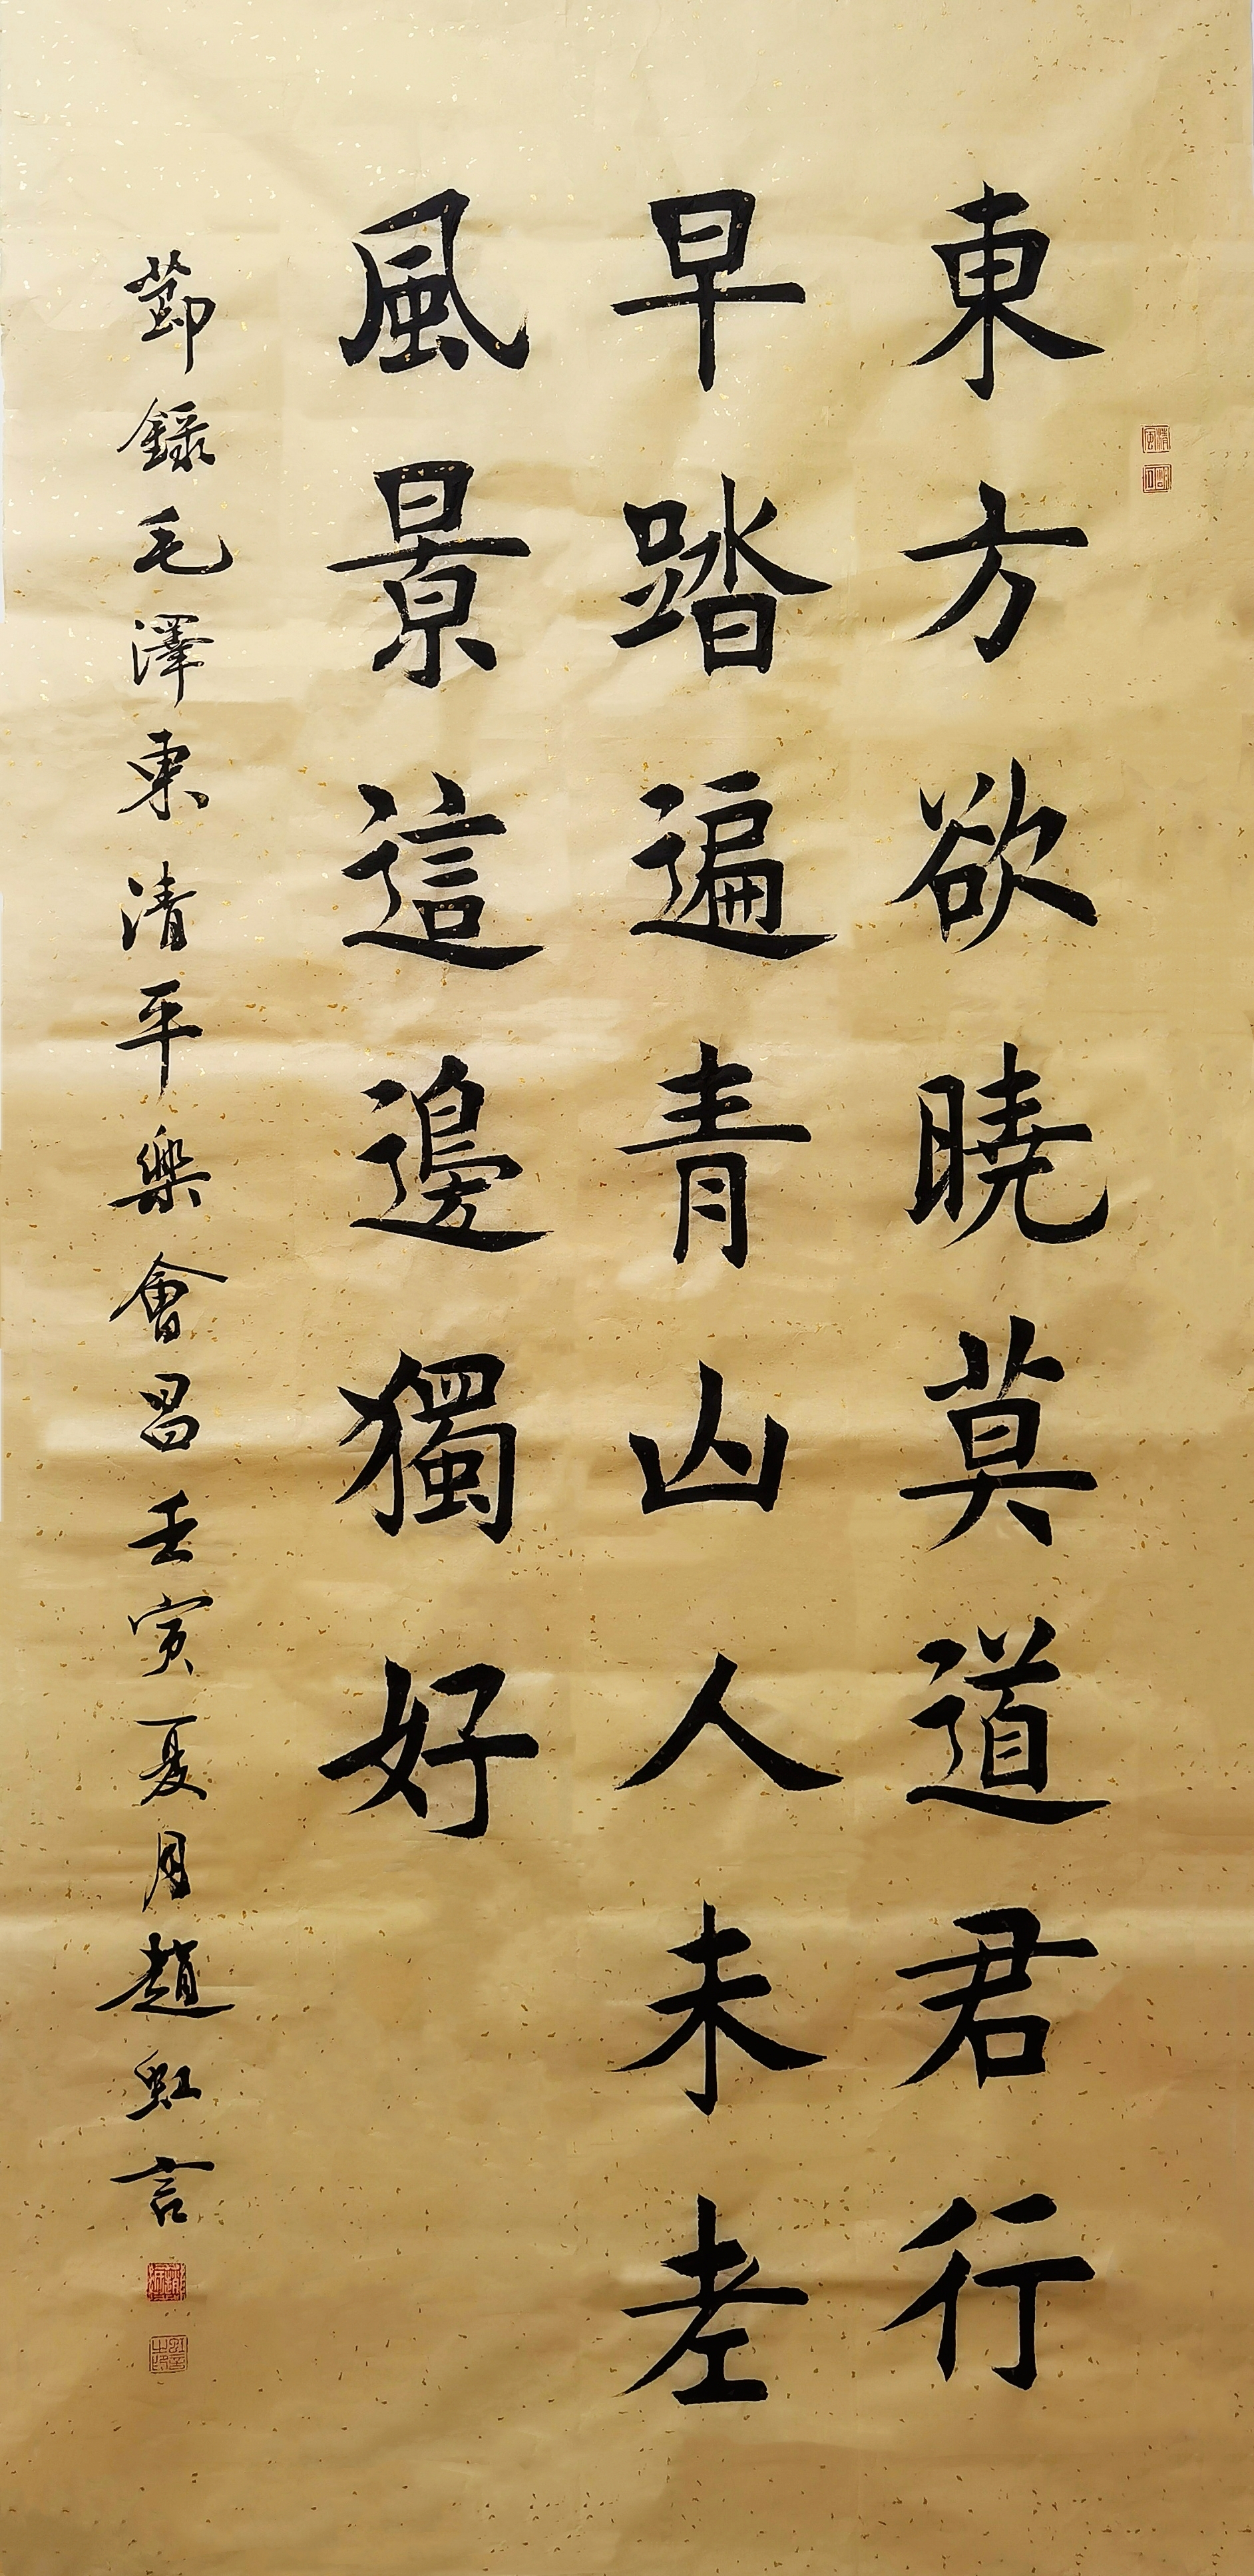 東方欲曉莫道君行
早踏遍青山人未老
風景這邊獨好
節錄毛澤東清平樂會昌壬寅夏月趙虹言